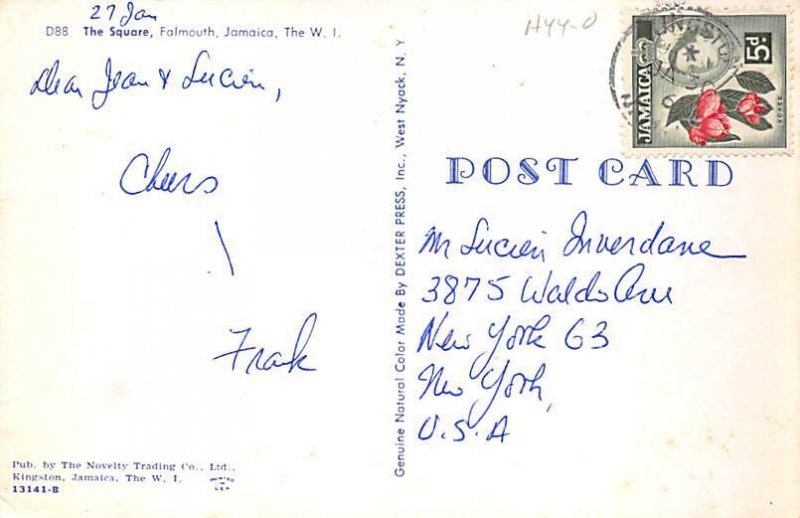 27 Jan
D88 The Square, Falmouth, Jamaica, The W. I.
Dear Jean & Lucien,
Cheers
Frank
Pub. by The Novelty Trading Co., Ltd.,
Kingston, Jamaica, The W. I.
13141-B
Genuine Natural Color Made By DEXTER PRESS, Inc., West Nyack, N. Y
H44-0
KINGSTON
JAMAICA
5d
ACKEE
POST CARD
Mr Lucien Inverdane
3875 Waldo Ave
New York 63
New York
U.S.A